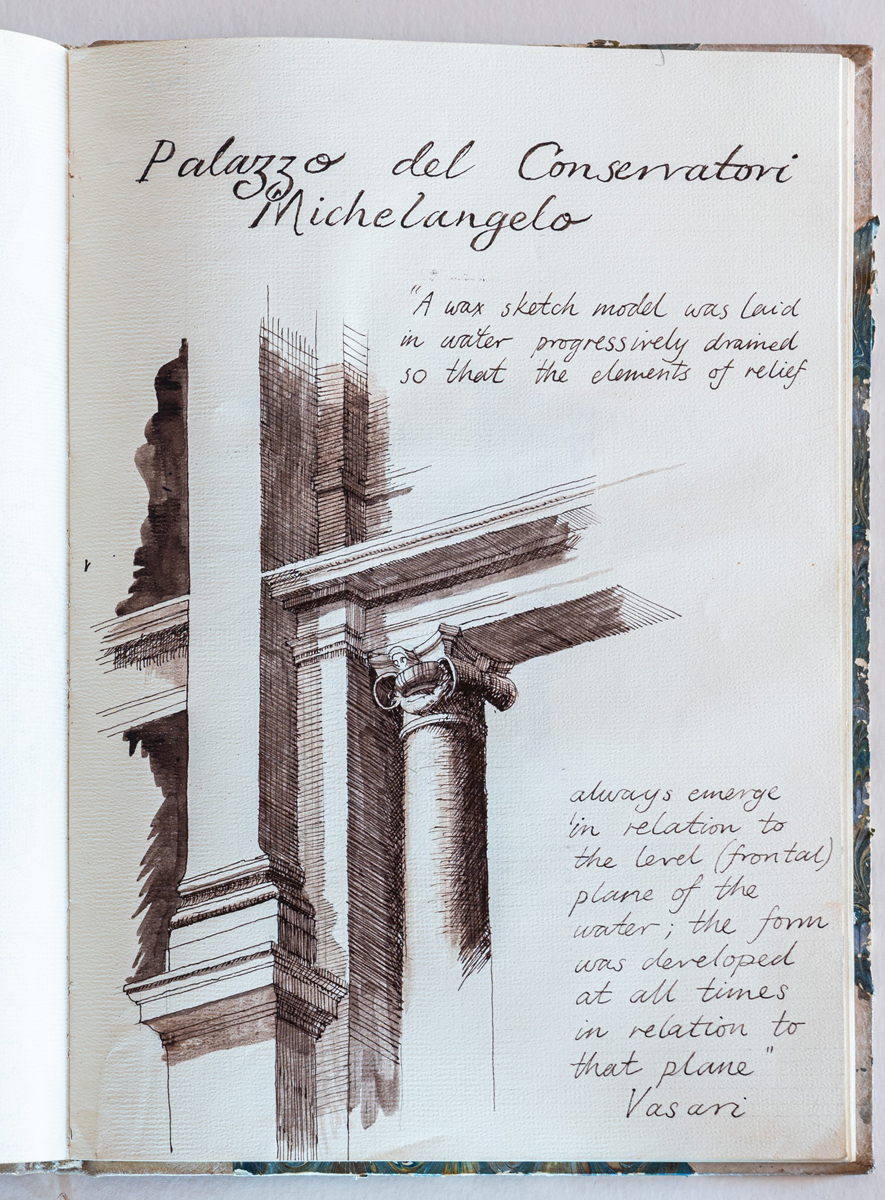 Palazzo del Conservatori
Michelangelo
"A wax sketch model was laid
in water progressively drained
so that the elements of relief
always emerge
in relation to
the level (frontal)
plane of the
water; the form
was developed
at all times
in relation to
that plane"
Vasari